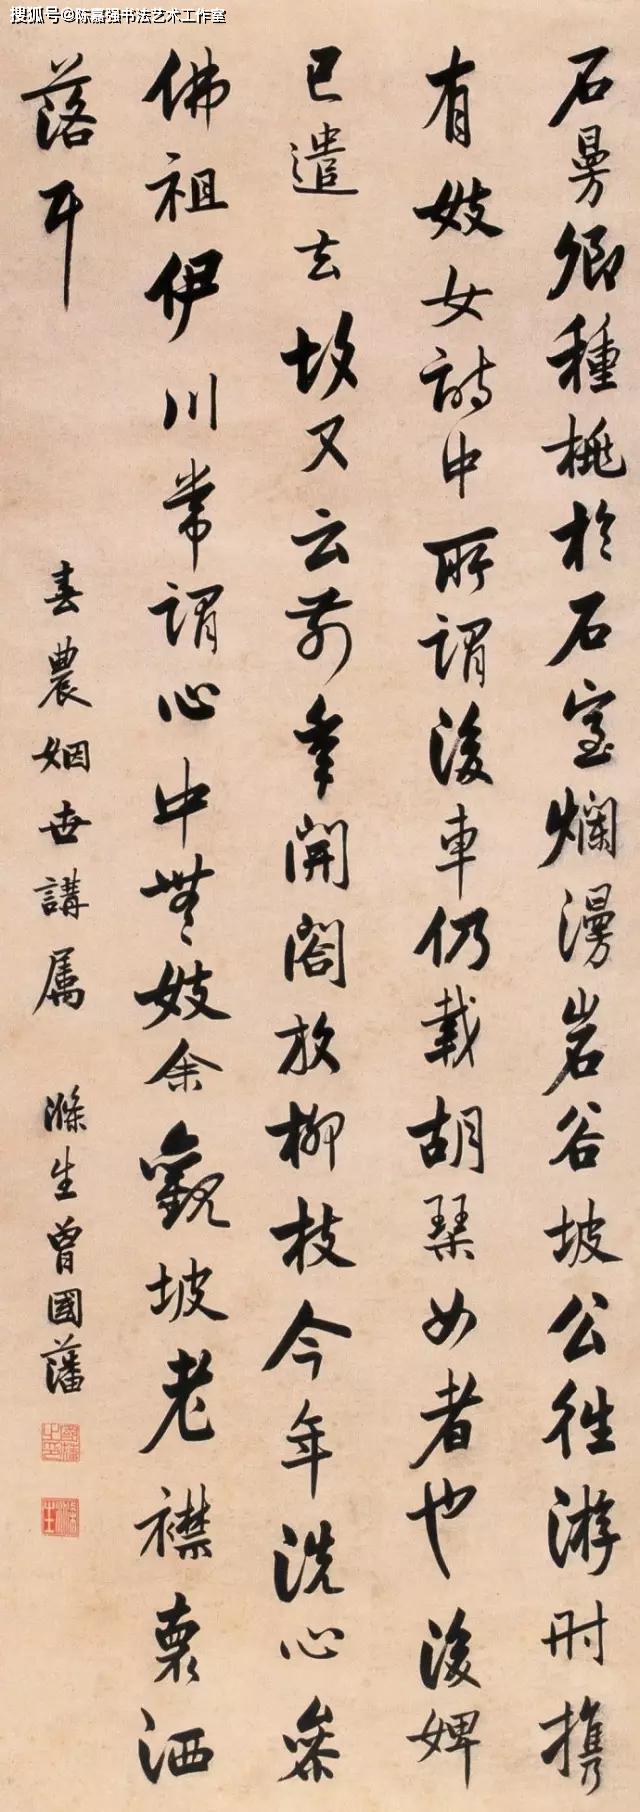 搜狐号@陈嘉强书法艺术工作室
石曼卿種桃於石室爛漫岩谷坡公往游時携
有妓女詩中所謂後車仍載胡琴女者也後婢
已遣去故又云前年開閤放柳枝今年洗心參
佛祖伊川常謂心中無妓余觀坡老襟裹洒
落耳
春農姻世講属
滌生曾國藩